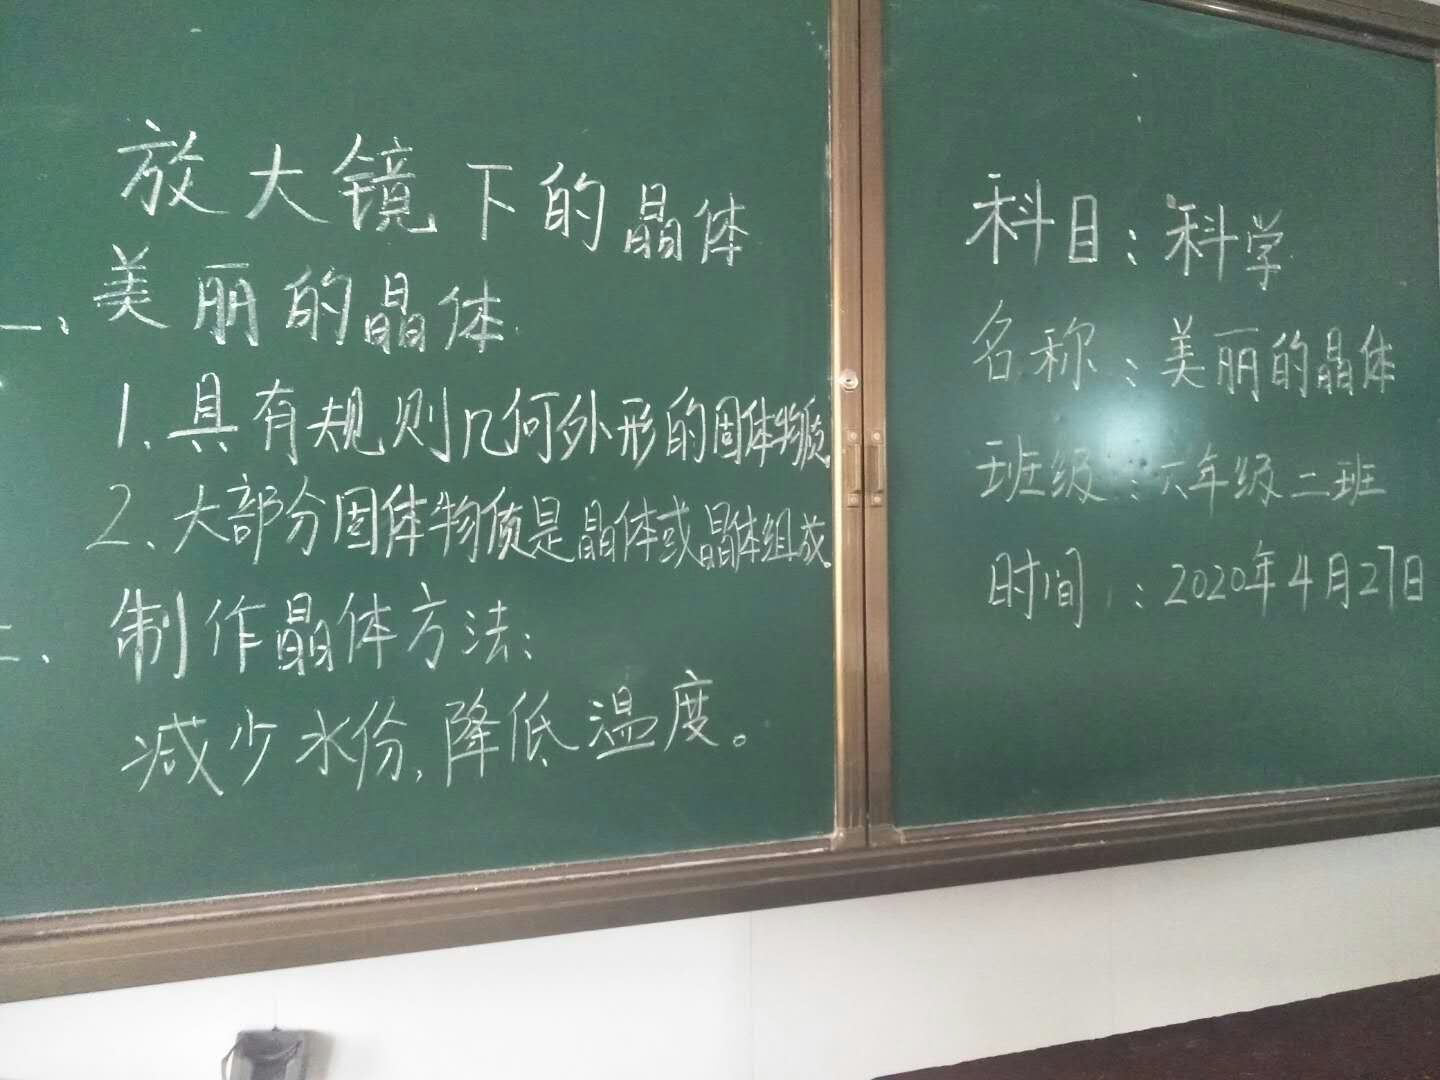 放大镜下的晶体
一、美丽的晶体
1、具有规则几何外形的固体物质
2、大部分固体物质是晶体或晶体组成
二、制作晶体方法:
减少水份,降低温度。
科目:科学
名称:美丽的晶体
班级:六年级二班
时间:2020年4月27日